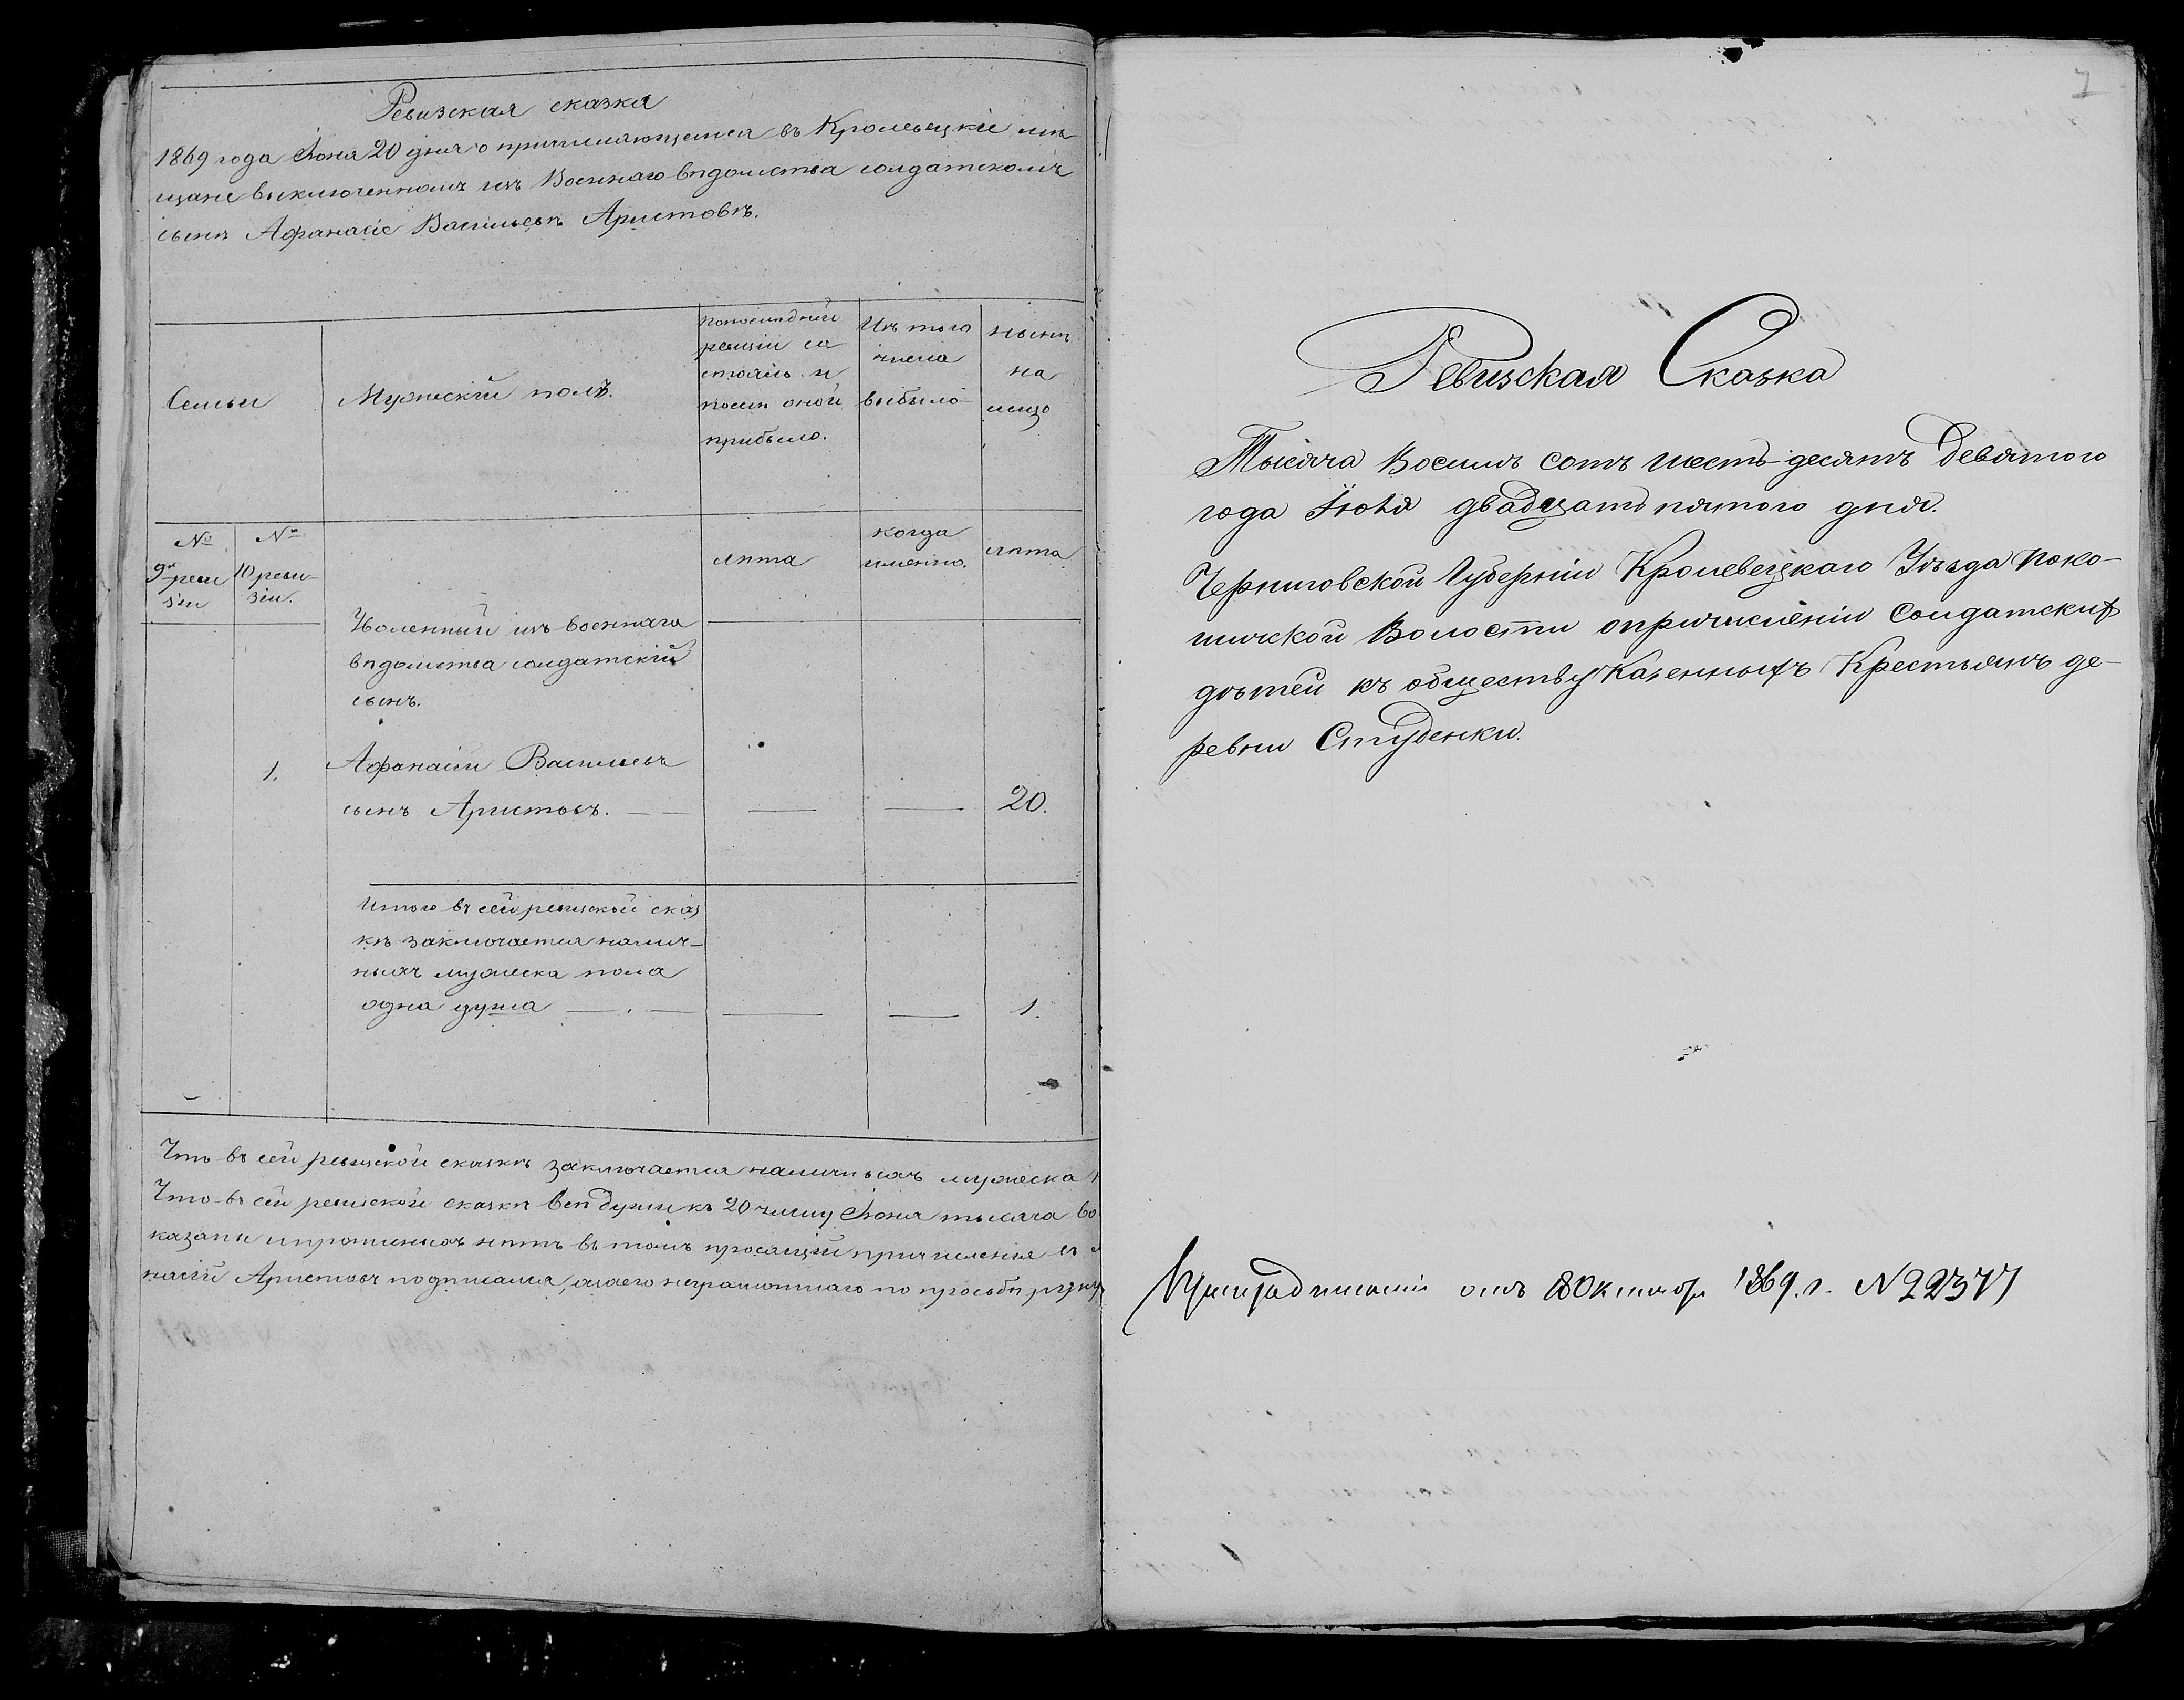 Ревизская сказка
1869 года Іюня 20 дня о причисляющемся въ Кролевецкіе мѣ
щане выключенномъ изъ Военнаго вѣдомства солдатскомъ
сынѣ Афанасіе Васильевѣ Аристовѣ.
Семьи
Мужескій полъ.
По последней
ревизіи со
стояло и
после оной
прибыло.
Изъ того
числа
выбыло
нынѣ
на
лицо
№
9й реви
зіи
№
10 реви-
зіи.
лѣта
когда
именно.
лѣта
Уволенный изъ военнаго
вѣдомства солдатскій
сынъ.
1. Афанасій Васильевъ
сынъ Аристовъ. — — 20.
Итого въ сей ревизской сказ
кѣ заключается налич-
ныхъ мужеска пола
одна душа — 1.
Что въ сей ревизской сказкѣ заключается наличныхъ мужеска
Что въ сей ревизской сказкѣ всѣ души къ 20 числу Іюня тысяча во
казаны и прописныхъ нѣтъ въ томъ просящій причисленія
насій Аристовъ подписался, а за его неграмотнаго по прозьбѣ руку
7
Ревизская Сказка
Тысяча Восемь сотъ шесть-десятъ Девятого
года Іюля двадцать пятого дня.
Черниговской Губерніи Кролевецкаго Уѣзда Поко-
шичской Волости опричисленіи Солдатскихъ
дѣтей къ обществу Казенныхъ Крестьянъ де-
ревни Студенки.
При предписаніи отъ 8 Октябр 1869. г. № 22377